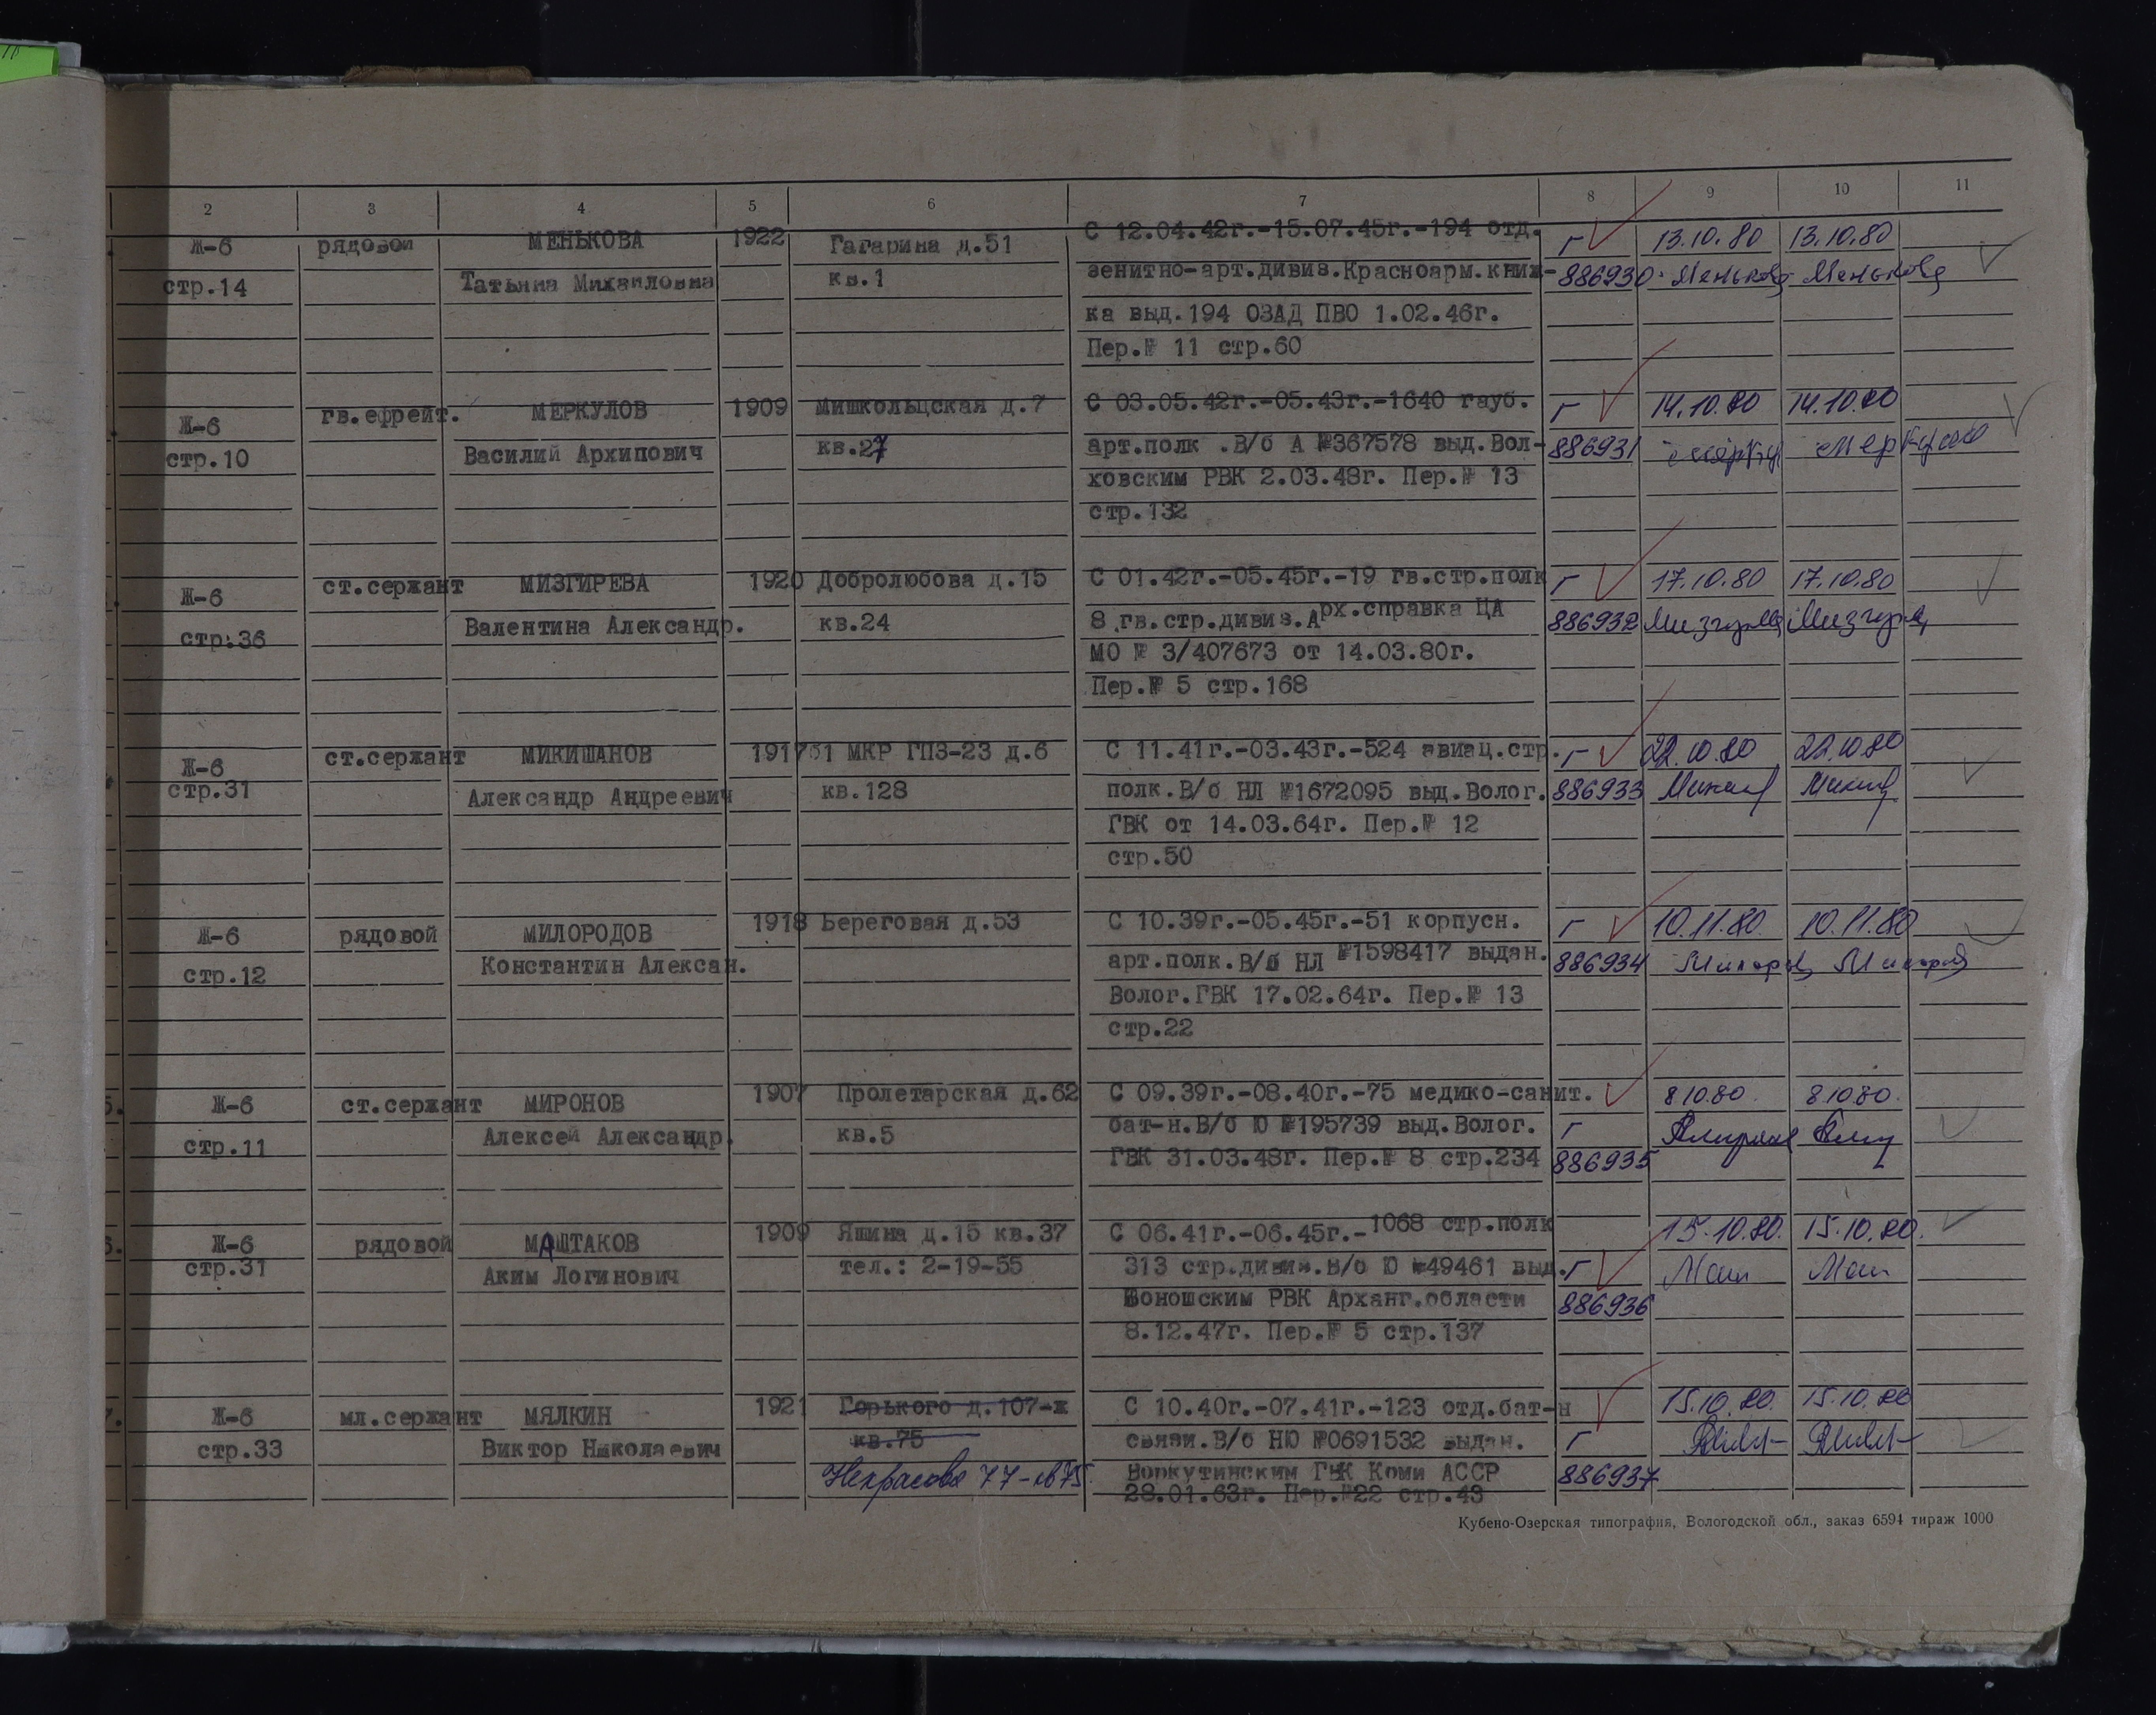 2 3 4 5 6 7 8 9 10 11
Ж-6 рядовой МЕНЬКОВА 1922 Гагарина д.51 С 12.04.42г.-15.07.45г.-194 отд. г 13.10.80 13.10.80
стр.14 Татьяна Михайловна кв.1 зенитно-арт.дивиз.Красноарм.книж- 886930 Менькова Менькова
ка выд.194 ОЗАД ПВО 1.02.46г.
Пер.№ 11 стр.60
Ж-6 гв.ефрейт. МЕРКУЛОВ 1909 Мишкольцская д.7 С 03.05.42г.-05.43г.-1640 гауб. г 14.10.80 14.10.80
стр.10 Василий Архипович кв.27 арт.полк .В/б А №367578 выд.Вол- 886931
ховским РВК 2.03.48г. Пер.№ 13
стр.132
Ж-6 ст.сержант МИЗГИРЕВА 1920 Добролюбова д.15 С 01.42г.-05.45г.-19 гв.стр.полк г 17.10.80 17.10.80
стр.36 Валентина Александр. кв.24 8 гв.стр.дивиз.Арх.справка ЦА 886932
МО № 3/407673 от 14.03.80г.
Пер.№ 5 стр.168
Ж-6 ст.сержант МИКИШАНОВ 1917 51 МКР ГПЗ-23 д.6 С 11.41г.-03.43г.-524 авиац.стр. г 22.10.80 22.10.80
стр.31 Александр Андреевич кв.128 полк.В/б НЛ №1672095 выд.Волог. 886933
ГВК от 14.03.64г. Пер.№ 12
стр.50
Ж-6 рядовой МИЛОРОДОВ 1918 Береговая д.53 С 10.39г.-05.45г.-51 корпусн. г 10.11.80. 10.11.80
стр.12 Константин Алексан. арт.полк.В/б НЛ №1598417 выдан. 886934
Волог.ГВК 17.02.64г. Пер.№ 13
стр.22
Ж-6 ст.сержант МИРОНОВ 1907 Пролетарская д.62 С 09.39г.-08.40г.-75 медико-санит. 8 10 80. 8 10 80.
стр.11 Алексей Александр. кв.5 бат-н.В/б Ю №195739 выд.Волог. г
ГВК 31.03.48г. Пер.№ 8 стр.234 886935
Ж-6 рядовой МАШТАКОВ 1909 Яшина д.15 кв.37 С 06.41г.-06.45г.-1068 стр.полк 15.10.80. 15.10.80.
стр.31 Аким Логинович тел.: 2-19-55 313 стр.дивиз.В/б Ю №49461 выд. г Маш Маш
Коношским РВК Арханг.области 886936
8.12.47г. Пер.№ 5 стр.137
Ж-6 мл.сержант МЯЛКИН 1921 Горького д.107-ж С 10.40г.-07.41г.-123 отд.бат-н 15.10.80. 15.10.80
стр.33 Виктор Николаевич кв.75 связи.В/б НЮ №0691532 выдан. г
Некрасова 77-кв75. Воркутинским ГВК Коми АССР 886937
28.01.63г. Пер.№22 стр.43
Кубено-Озерская типография, Вологодской обл., заказ 6594 тираж 1000